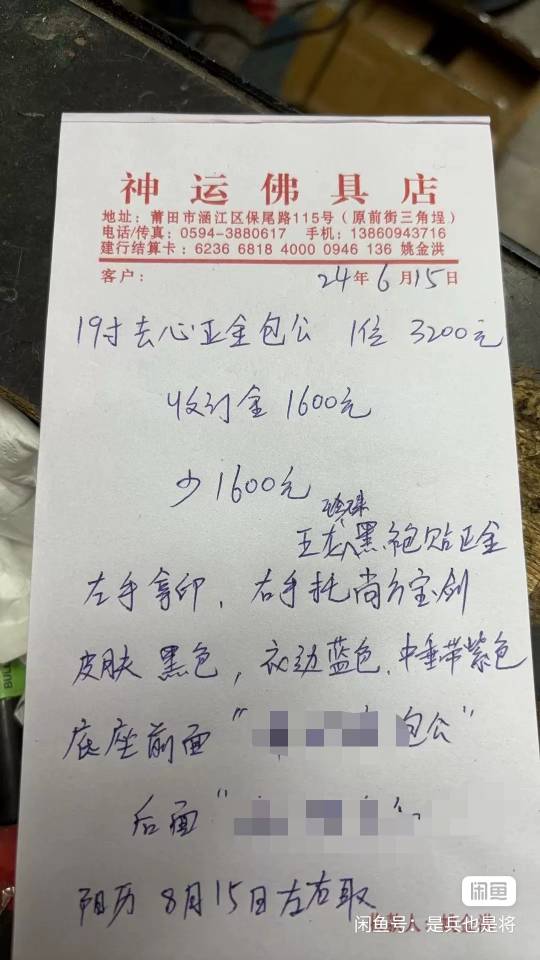 神运佛具店
地址：莆田市涵江区保尾路115号（原前街三角埕）
电话/传真：0594-3880617 手机：13860943716
建行结算卡：6236 6818 4000 0946 136 姚金洪
客户： 24年6月15日
19寸去心正金包公 1位 3200元
收订金1600元
少1600元
珍珠
五龙黑袍贴正金
左手拿印，右手托尚方宝剑
皮肤黑色，衣边蓝色，中垂带紫色
底座前面“ 包公”
后面“
阳历8月15日左右取
闲鱼
闲鱼号：是兵也是将